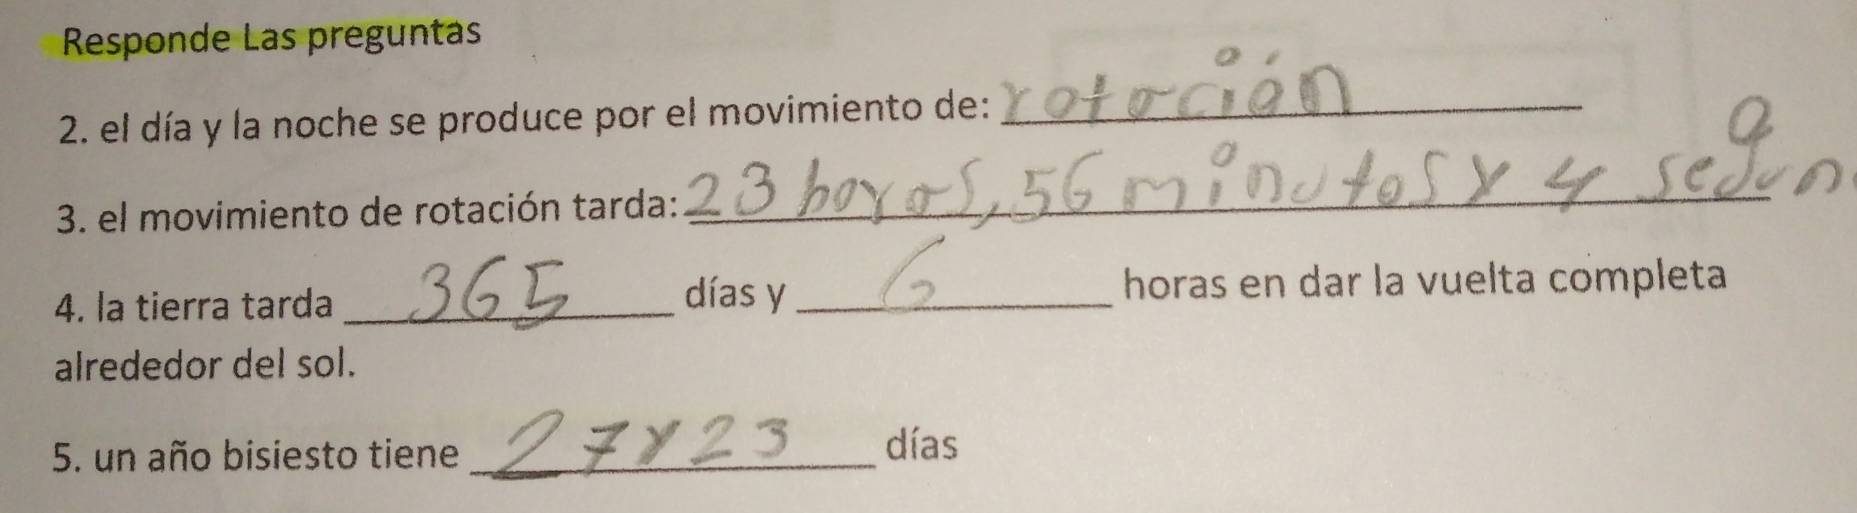 Responde Las preguntas
2. el día y la noche se produce por el movimiento de: rotación
3. el movimiento de rotación tarda: 23 horas, 56 minutos y 4 segun
4. la tierra tarda 365 días y 6 horas en dar la vuelta completa
alrededor del sol.
5. un año bisiesto tiene 27 y 23 días